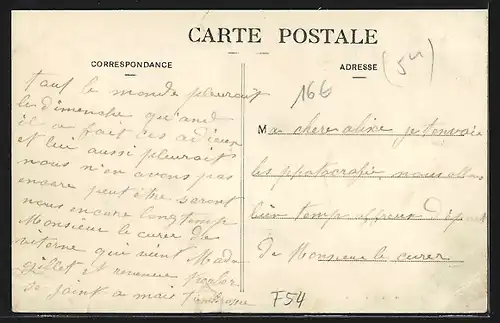 CARTE POSTALE
CORRESPONDANCE
ADRESSE
(54)
166
tout le monde pleurait
le dimanche quand
il a fait ses adieux
et lui aussi pleurait
nous n'en avons pas
encore peut être seront
nous encore longtemp
Monsieur le curer de
viterne qui vient Mada
gillet et revenue
se joint a mais
Ma chere alixe je tenvoie
les
bien temp affreux depart
de Monsieur le curer
F54